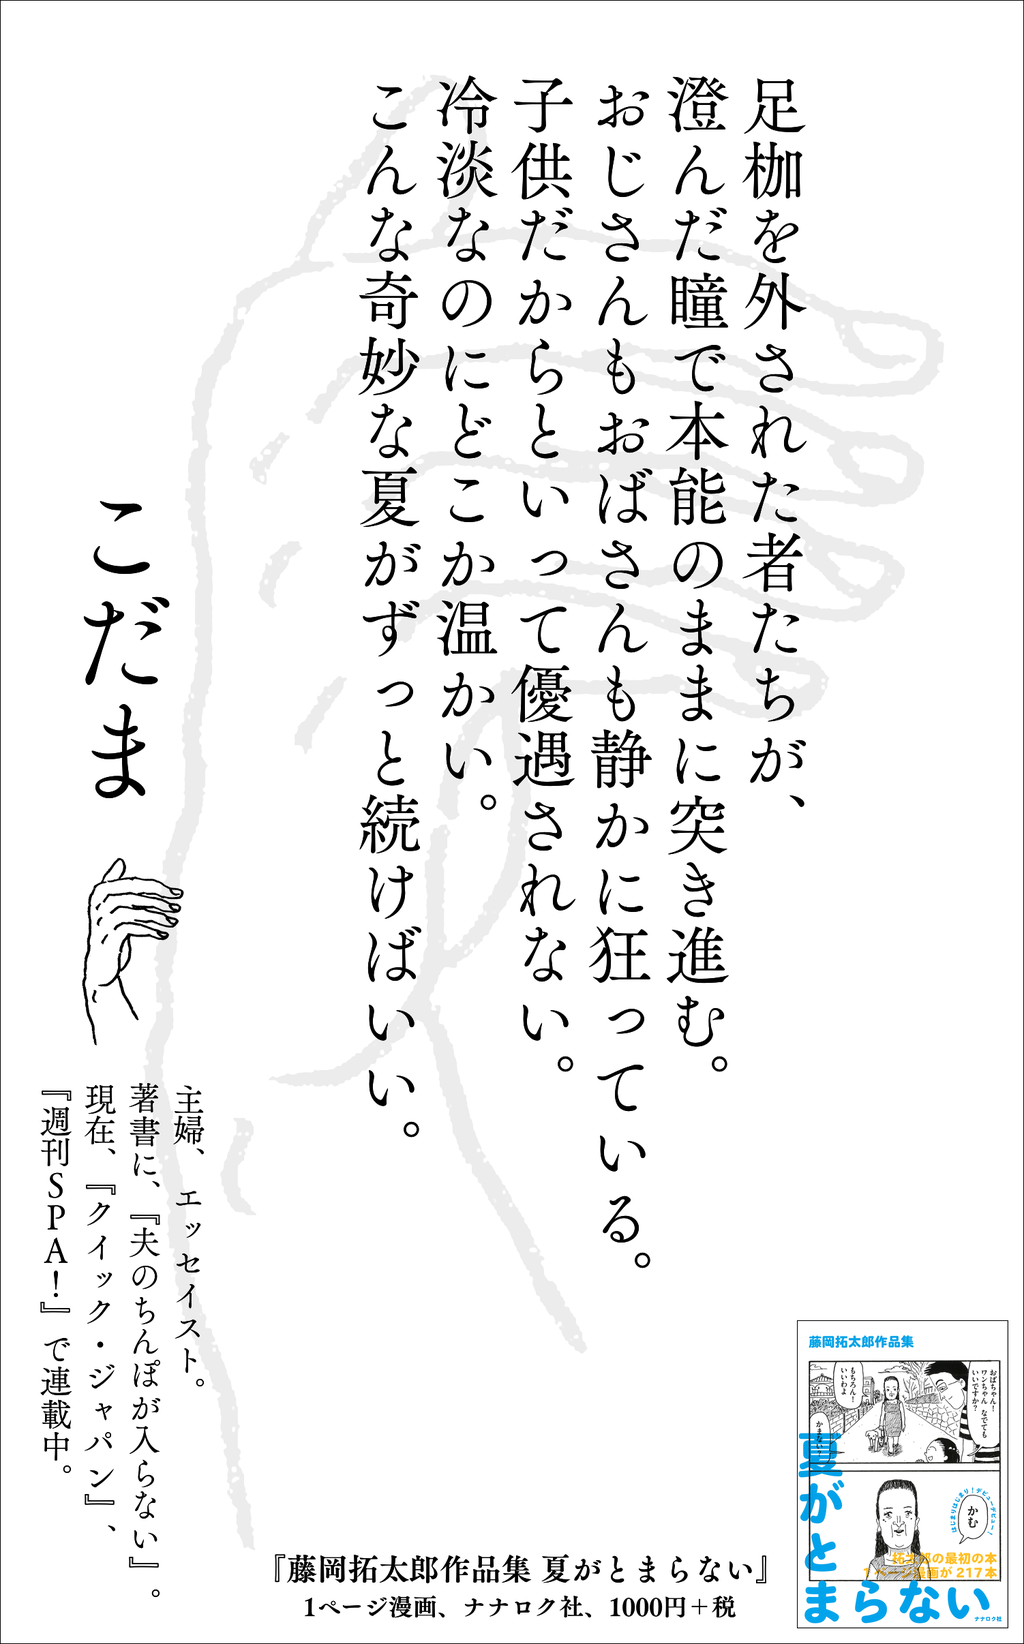 足枷を外された者たちが、
澄んだ瞳で本能のままに突き進む。
おじさんもおばさんも静かに狂っている。
子供だからといって優遇されない。
冷淡なのにどこか温かい。
こんな奇妙な夏がずっと続けばいい。
こだま
主婦、エッセイスト。
著書に、『夫のちんぽが入らない』。
現在、『クイック・ジャパン』、
『週刊SPA!』で連載中。
『藤岡拓太郎作品集 夏がとまらない』
1ページ漫画、ナナロク社、1000円+税
藤岡拓太郎作品集
おばちゃん!
ワンちゃん なでても
いいですか?
もちろん!
いいわよ
かまない?
かむ
はじまりはじまり!デビューデビュー!
夏がとまらない
拓太郎の最初の本
1ページ漫画が217本
ナナロク社